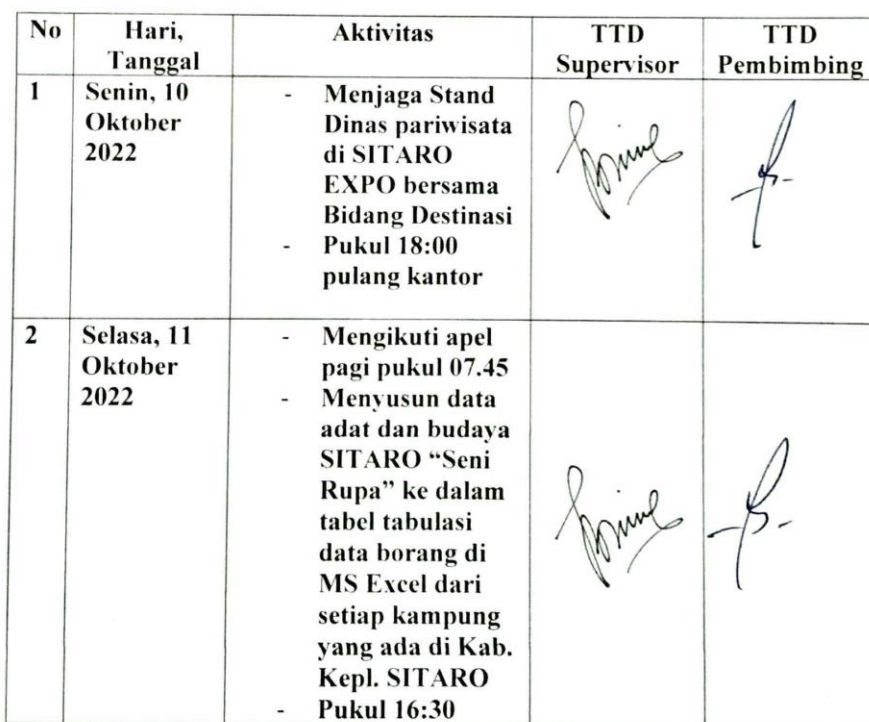 No Hari, Tanggal Aktivitas TTD Supervisor TTD Pembimbing
1 Senin, 10 Oktober 2022
- Menjaga Stand
Dinas pariwisata
di SITARO
EXPO bersama
Bidang Destinasi
- Pukul 18:00
pulang kantor
2 Selasa, 11 Oktober 2022
- Mengikuti apel
pagi pukul 07.45
- Menyusun data
adat dan budaya
SITARO “Seni
Rupa” ke dalam
tabel tabulasi
data borang di
MS Excel dari
setiap kampung
yang ada di Kab.
Kepl. SITARO
- Pukul 16:30